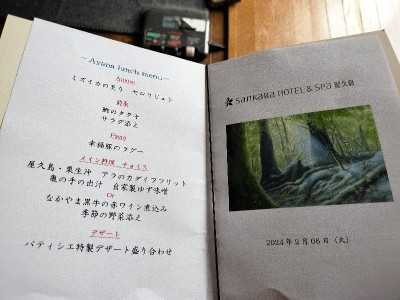 ~Ayana lunch menu~
Amuse
ミズイカの炙り サルリジョレ
前菜
鰹のタタキ
サラダ添え
Pasta
赤緑豚のラグー
メイン料理 チョイス
屋久島・栗生沖 アラのカダイフフリット
亀の手の出汁 自家製ゆず味噌
Or
なかやま黒牛の赤ワイン煮込み
季節の野菜添え
デザート
パティシエ特製デザート盛り合わせ
sankara HOTEL & SPA 屋久島
2024 年 2 月 06 日 (火)